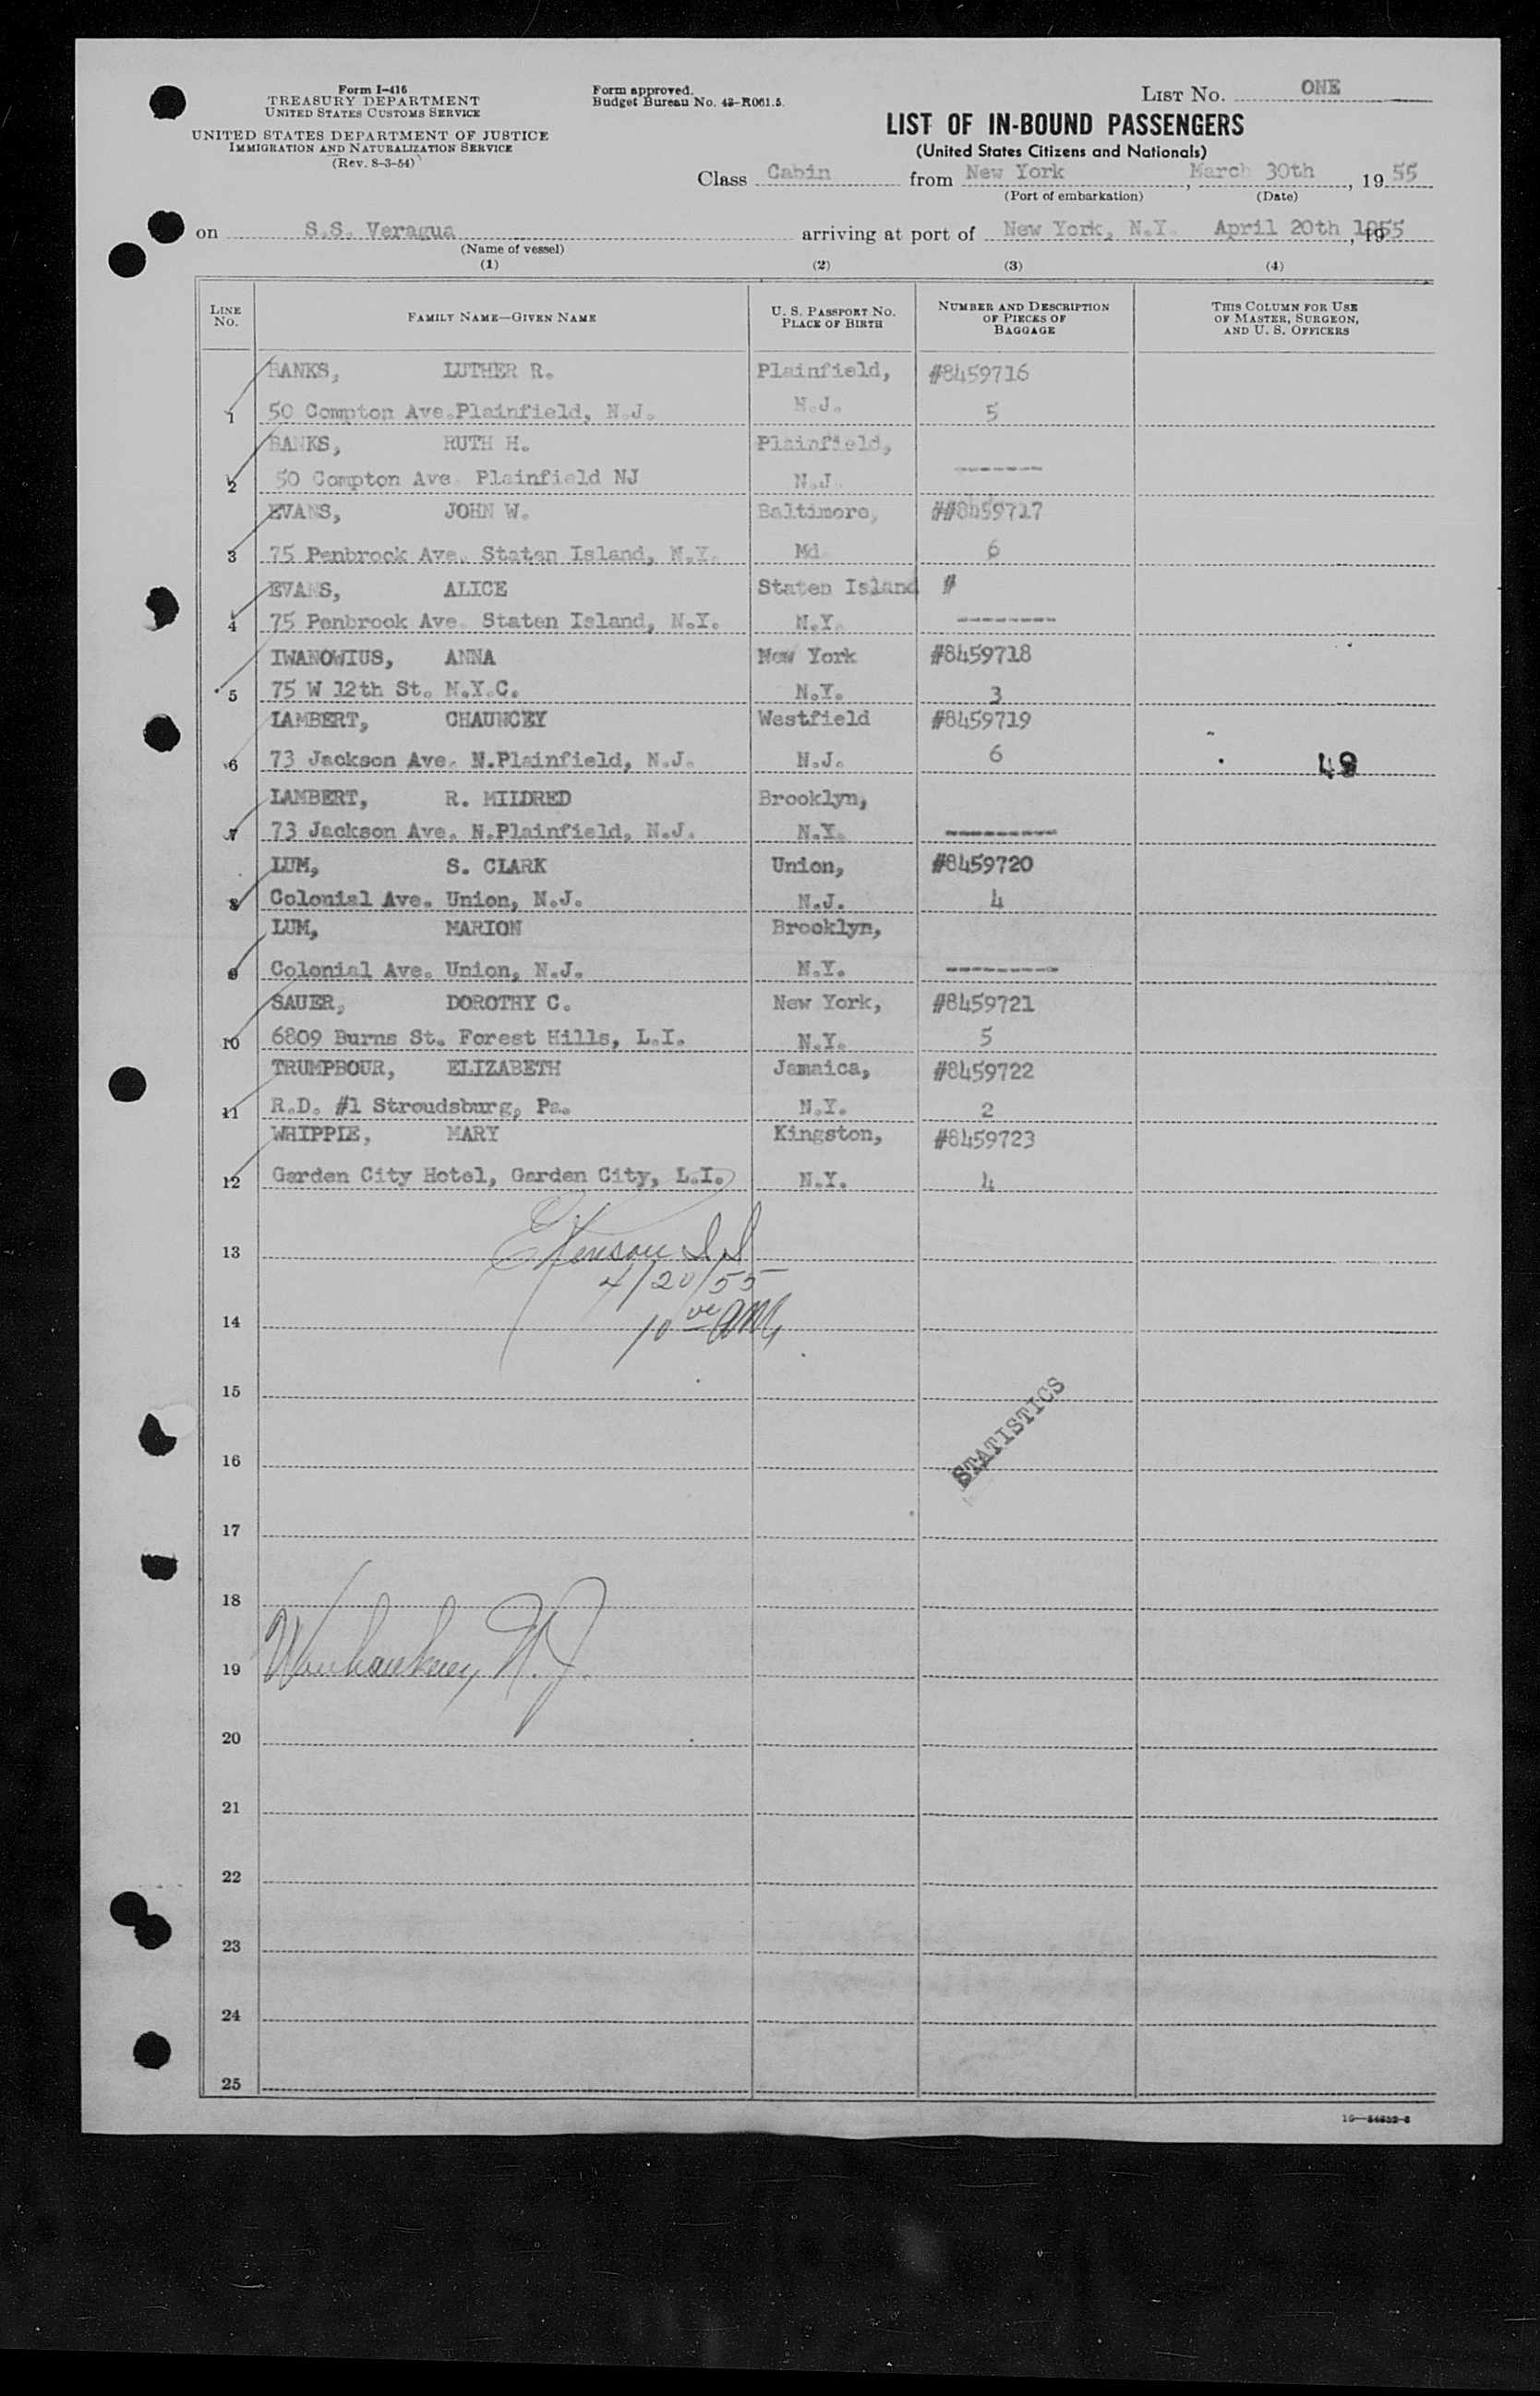 Form I-416
TREASURY DEPARTMENT
UNITED STATES CUSTOMS SERVICE
UNITED STATES DEPARTMENT OF JUSTICE
IMMIGRATION AND NATURALIZATION SERVICE
(Rev. 8-3-54)
Form approved.
Budget Bureau No. 43-R061.5.
LIST No. ONE
LIST OF IN-BOUND PASSENGERS
(United States Citizens and Nationals)
Class Cabin from New York, March 30th, 1955
(Port of embarkation) (Date)
on S.S. Veragua arriving at port of New York, N.Y. April 20th 1955, 19
(Name of vessel)
(1) (2) (3) (4)
LINE No.
FAMILY NAME—GIVEN NAME
U. S. PASSPORT NO.
PLACE OF BIRTH
NUMBER AND DESCRIPTION
OF PIECES OF
BAGGAGE
THIS COLUMN FOR USE
OF MASTER, SURGEON,
AND U. S. OFFICERS
BANKS, LUTHER R. Plainfield, #8459716
1 50 Compton Ave.Plainfield, N.J. N.J. 5
BANKS, RUTH H. Plainfield,
2 50 Compton Ave. Plainfield NJ N.J. -------
EVANS, JOHN W. Baltimore, ##8459717
3 75 Penbrock Ave. Staten Island, N.Y. Md. 6
EVANS, ALICE Staten Island #
4 75 Penbrook Ave. Staten Island, N.Y. N.Y. --------
IWANOWIUS, ANNA New York #8459718
5 75 W 12th St. N.Y.C. N.Y. 3
LAMBERT, CHAUNCEY Westfield #8459719
6 73 Jackson Ave. N.Plainfield, N.J. N.J. 6 49
LAMBERT, R. MILDRED Brooklyn,
7 73 Jackson Ave. N.Plainfield, N.J. N.Y. ---------
LUM, S. CLARK Union, #8459720
8 Colonial Ave. Union, N.J. N.J. 4
LUM, MARION Brooklyn,
9 Colonial Ave. Union, N.J. N.Y. ---------
SAUER, DOROTHY C. New York, #8459721
10 6809 Burns St. Forest Hills, L.I. N.Y. 5
TRUMPBOUR, ELIZABETH Jamaica, #8459722
11 R.D. #1 Stroudsburg, Pa. N.Y. 2
WHIPPLE, MARY Kingston, #8459723
12 Garden City Hotel, Garden City, L.I. N.Y. 4
13
4/20/55
14 10 AM
15
STATISTICS
16
17
18
19 N.J.
20
21
22
23
24
25